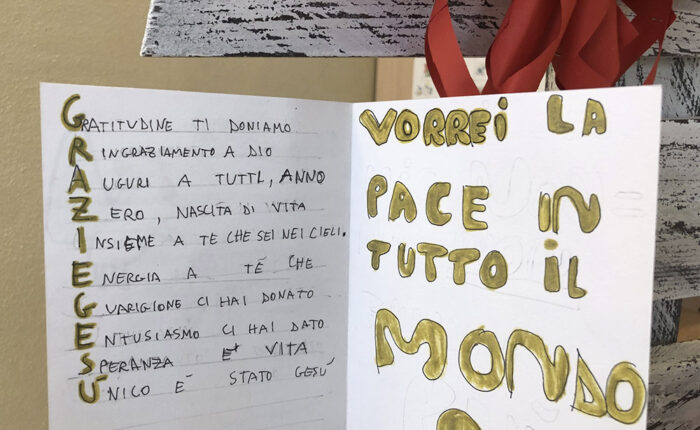 GRATITUDINE TI DONIAMO
RINGRAZIAMENTO A DIO
AUGURI A TUTTI, ANNO
ZERO, NASCITA DI VITA
INSIEME A TE CHE SEI NEI CIELI.
ENERGIA A TÉ CHE
GUARIGIONE CI HAI DONATO
ENTUSIASMO CI HAI DATO
SPERANZA E' VITA
ÙNICO E' STATO GESÙ
VORREI LA
PACE IN
TUTTO IL
MONDO